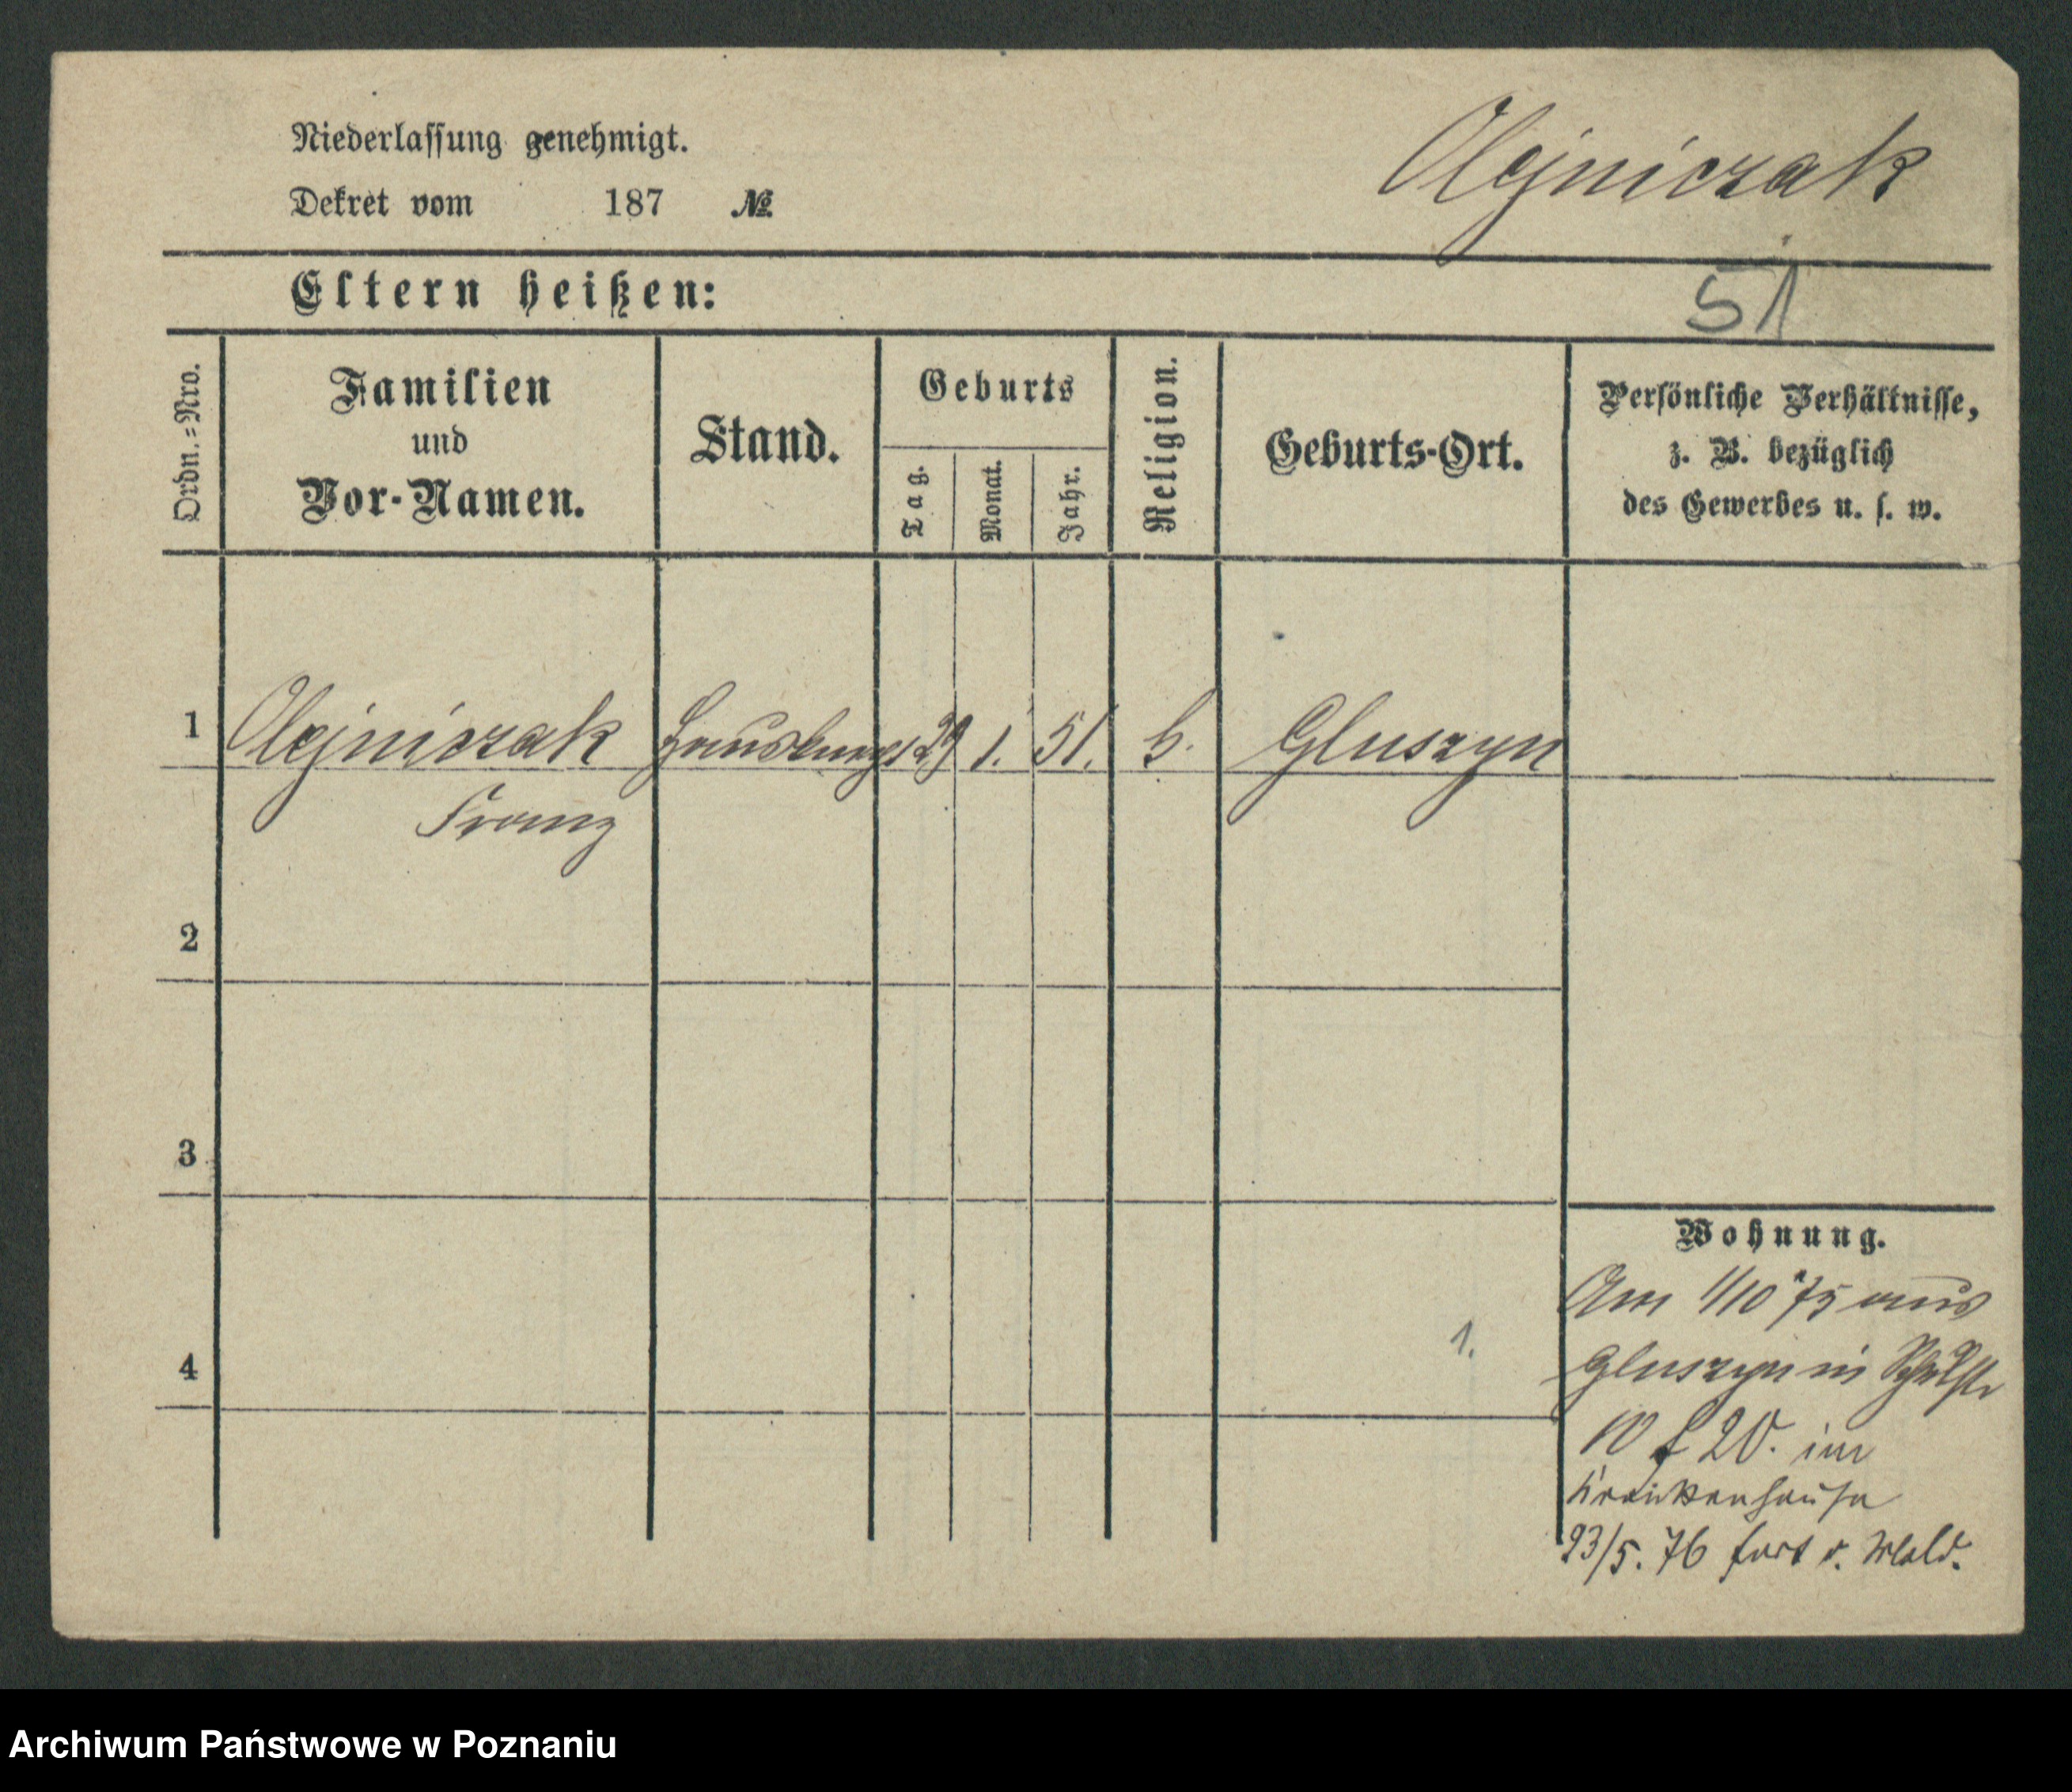 Niederlassung genehmigt.
Dekret vom 187 №
Olejniczak
Eltern heißen:
51
Ordn.=Nro.
Familien
und
Vor-Namen.
Stand.
Geburts
Tag.
Monat.
Jahr.
Religion.
Geburts-Ort.
Persönliche Verhältnisse,
z. B. bezüglich
des Gewerbes u. s. w.
1 Olejniczak 29 1. 51. Gluszyn
Franz
2
3
4
Wohnung.
Am 1/10 75 aus
Gluszyn in
1.
10 f 20. im
Krankenhause
23/5. 76 fort
Archiwum Państwowe w Poznaniu